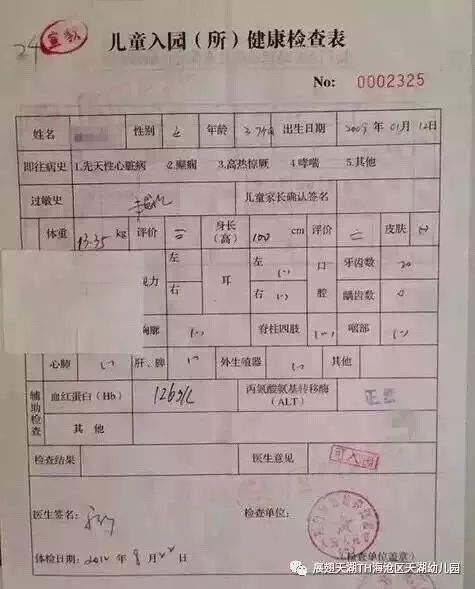 24 宣教
儿童入园(所)健康检查表
No: 0002325
姓名 性别 女 年龄 出生日期 2009 年 01 月 12 日
既往病史 1.先天性心脏病 2.癫痫 3.高热惊厥 4.哮喘 5.其他
过敏史 儿童家长确认签名
体重 13.35 kg 评价 二 身长(高) 100 cm 评价 二 皮肤 (-)
视力 左 右 耳 左 (-) 右 (-) 口腔 牙齿数 20 龋齿数 0
胸廓 (-) 脊柱四肢 (-) 咽部 (-)
心肺 (-) 肝、脾 (-) 外生殖器 (-) 其他
辅助检查 血红蛋白(Hb) 126g/L 丙氨酸氨基转移酶(ALT) 正常
其他
检查结果 医生意见 可入园
医生签名: 检查单位:
体检日期: 2012 年 8 月 22 日 (检查单位盖章)
展翅天湖TH海沧区天湖幼儿园